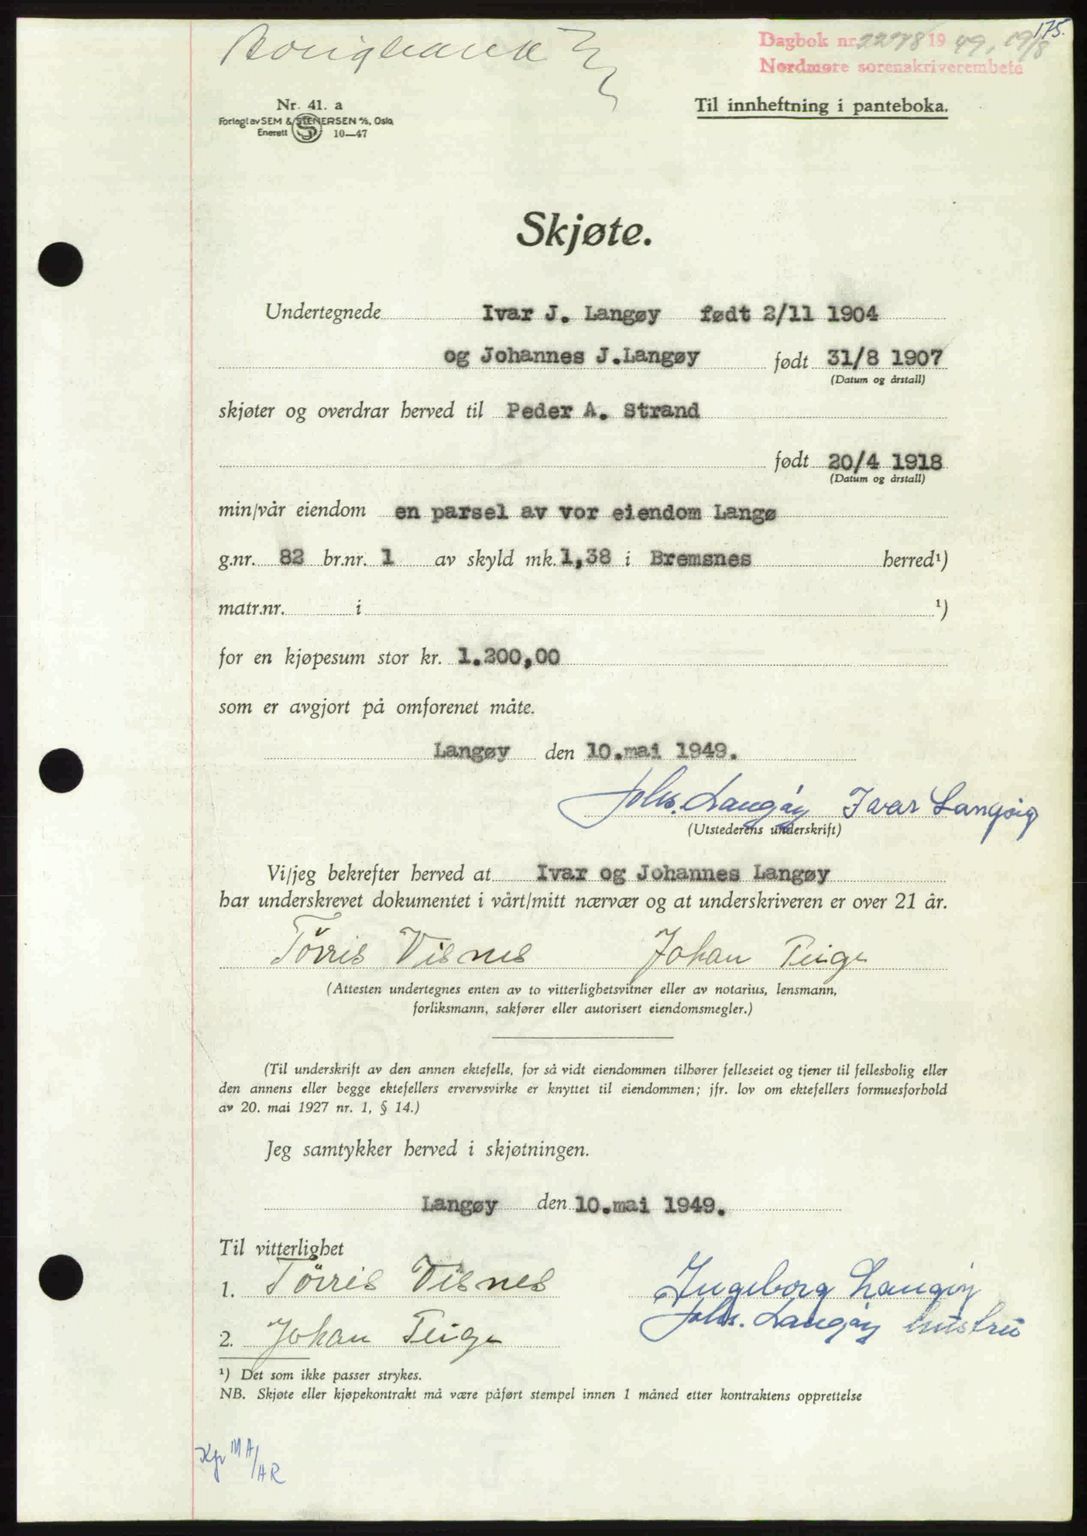 175.
Dagbok nr. 2278 1949, 19/8
Nordmøre sorenskriverembete
Nr. 41. a
Forlagt av SEM & STENERSEN A/S, Oslo
Enerett 10—47
Til innheftning i panteboka.
Skjøte.
Undertegnede Ivar J. Langøy født 2/11 1904
og Johannes J.Langøy født 31/8 1907
(Datum og årstall)
skjøter og overdrar herved til Peder A. Strand
født 20/4 1918
(Datum og årstall)
min/vår eiendom en parsel av vor eiendom Langø
g.nr. 82 br.nr. 1 av skyld mk. 1,38 i Bremsnes herred¹)
matr.nr. i ¹)
for en kjøpesum stor kr. 1.200,00
som er avgjort på omforenet måte.
Langøy den 10.mai 1949.
Johs. Langøy Ivar Langøig
(Utstederens underskrift)
Vi/jeg bekrefter herved at Ivar og Johannes Langøy
har underskrevet dokumentet i vårt/mitt nærvær og at underskriveren er over 21 år.
Tørris Visnes Johan Teige
(Attesten undertegnes enten av to vitterlighetsvitner eller av notarius, lensmann,
forliksmann, sakfører eller autorisert eiendomsmegler.)
(Til underskrift av den annen ektefelle, for så vidt eiendommen tilhører felleseiet og tjener til fellesbolig eller
den annens eller begge ektefellers ervervsvirke er knyttet til eiendommen; jfr. lov om ektefellers formuesforhold
av 20. mai 1927 nr. 1, § 14.)
Jeg samtykker herved i skjøtningen.
Langøy den 10.mai 1949.
Til vitterlighet
1. Tørris Visnes Ingeborg Langøy
Johs. Langøy hustru
2. Johan Teige
¹) Det som ikke passer strykes.
NB. Skjøte eller kjøpekontrakt må være påført stempel innen 1 måned etter kontraktens opprettelse
MA/AR